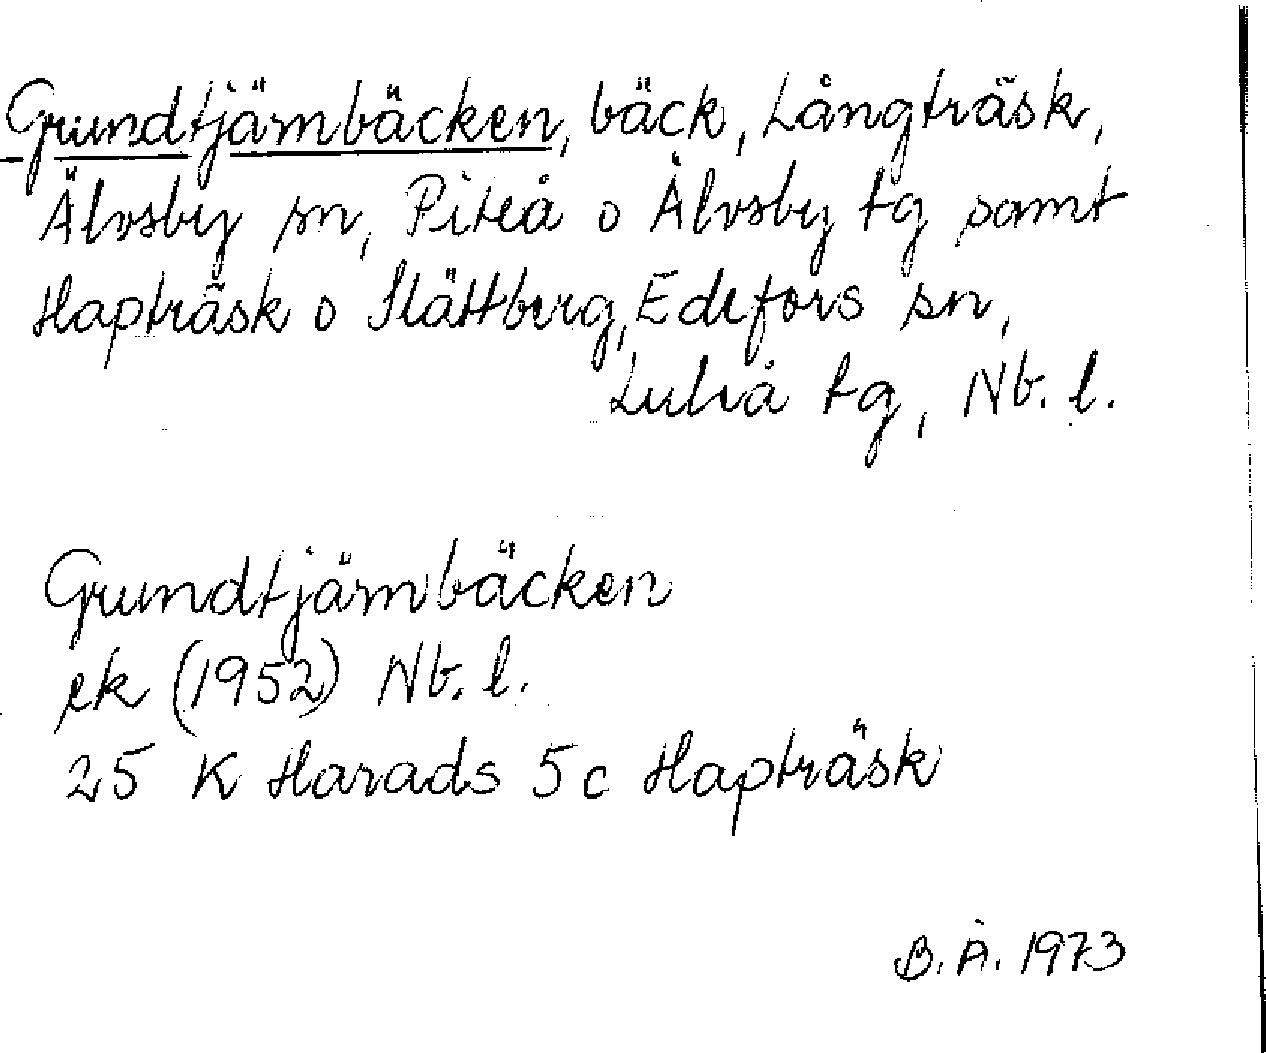 Grundtjärnbäcken, bäck, Långträsk,
Älvsby sn, Piteå o Älvsby tg samt
Hapträsk o Slättberg, Edefors sn,
Luleå tg, Nb. l.
Grundtjärnbäcken
ek (1952) Nb. l.
25 K Harads 5c Hapträsk
B. Å. 1973